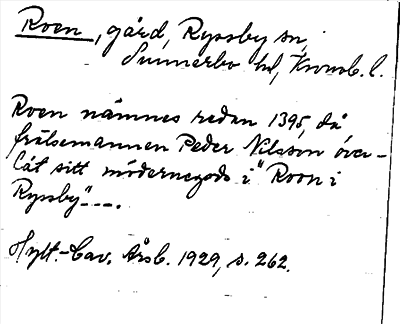 Roen, gård, Ryssby sn,
Sunnerbo hd, Kronob. l.
Roen nämnes redan 1395, då
frälsemannen Peder Nilsson över-
lät sitt mödernegods i "Roon i
Ryssby" - - -.
Hylt.-Cav. Årsb. 1929, s. 262.